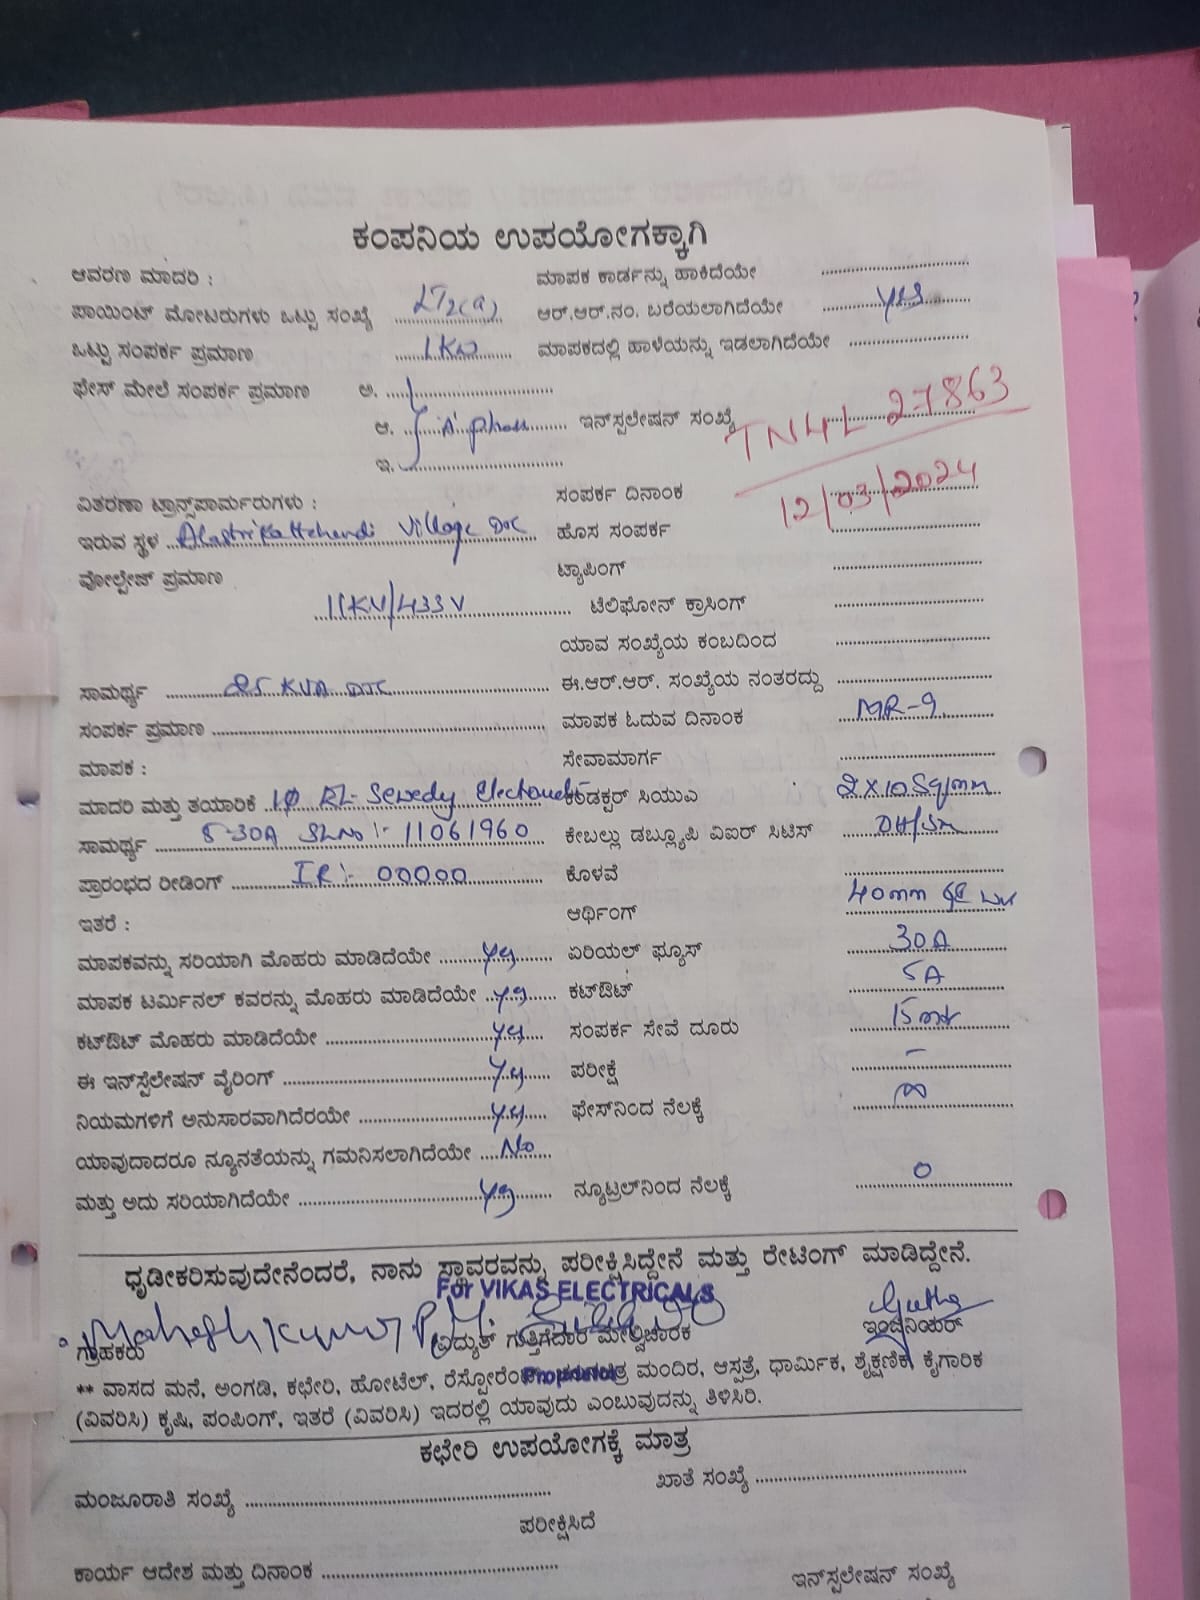 ಕಂಪನಿಯ ಉಪಯೋಗಕ್ಕಾಗಿ
ಆವರಣ ಮಾದರಿ : ಮಾಪಕ ಕಾರ್ಡನ್ನು ಹಾಕಿದೆಯೇ ....................
ಪಾಯಿಂಟ್ ಮೋಟರುಗಳು ಒಟ್ಟು ಸಂಖ್ಯೆ LT2(a) ಆರ್.ಆರ್.ನಂ. ಬರೆಯಲಾಗಿದೆಯೇ Yes
ಒಟ್ಟು ಸಂಪರ್ಕ ಪ್ರಮಾಣ 1KW ಮಾಪಕದಲ್ಲಿ ಹಾಳೆಯನ್ನು ಇಡಲಾಗಿದೆಯೇ ....................
ಫೇಸ್ ಮೇಲೆ ಸಂಪರ್ಕ ಪ್ರಮಾಣ ಅ. ....................
ಆ. 'A' phase ಇನ್‌ಸ್ಟಲೇಷನ್ ಸಂಖ್ಯೆ TN4L 27863
ಇ. ....................
ವಿತರಣಾ ಟ್ರಾನ್ಸ್‌ಪಾರ್ಮರುಗಳು : ಸಂಪರ್ಕ ದಿನಾಂಕ 12/03/2024
ಇರುವ ಸ್ಥಳ Village ಹೊಸ ಸಂಪರ್ಕ ....................
ವೋಲ್ಟೇಜ್ ಪ್ರಮಾಣ ಟ್ಯಾಪಿಂಗ್ ....................
11KV/433V ಟೆಲಿಫೋನ್ ಕ್ರಾಸಿಂಗ್ ....................
ಯಾವ ಸಂಖ್ಯೆಯ ಕಂಬದಿಂದ ....................
ಸಾಮರ್ಥ್ಯ 25 KVA ಈ.ಆರ್.ಆರ್. ಸಂಖ್ಯೆಯ ನಂತರದ್ದು ....................
ಸಂಪರ್ಕ ಪ್ರಮಾಣ .................... ಮಾಪಕ ಓದುವ ದಿನಾಂಕ MR-9
ಮಾಪಕ : ಸೇವಾಮಾರ್ಗ ....................
ಮಾದರಿ ಮತ್ತು ತಯಾರಿಕೆ 1Φ ಕಂಡಕ್ಟರ್ ಸಿಯುಎ 2X10 Sq/mm
ಸಾಮರ್ಥ್ಯ 5-30A SL No :- 11061960 ಕೇಬಲ್ಲು ಡಬ್ಲ್ಯೂಪಿ ವಿಐರ್ ಸಿಟಿಸ್
ಪ್ರಾರಂಭದ ರೀಡಿಂಗ್ IR :- 00000 ಕೊಳವೆ ....................
ಇತರೆ : ಆರ್ಥಿಂಗ್ 40mm
ಮಾಪಕವನ್ನು ಸರಿಯಾಗಿ ಮೊಹರು ಮಾಡಿದೆಯೇ Yes ಏರಿಯಲ್ ಫ್ಯೂಸ್ 30A
ಮಾಪಕ ಟರ್ಮಿನಲ್ ಕವರನ್ನು ಮೊಹರು ಮಾಡಿದೆಯೇ Yes ಕಟ್‌ಔಟ್ 5A
ಕಟ್‌ಔಟ್ ಮೊಹರು ಮಾಡಿದೆಯೇ Yes ಸಂಪರ್ಕ ಸೇವೆ ದೂರು 15
ಈ ಇನ್‌ಸ್ಟೆಲೇಷನ್ ವೈರಿಂಗ್ Yes ಪರೀಕ್ಷೆ –
ನಿಯಮಗಳಿಗೆ ಅನುಸಾರವಾಗಿದೆರಯೇ Yes ಫೇಸ್‌ನಿಂದ ನೆಲಕ್ಕೆ ∞
ಯಾವುದಾದರೂ ನ್ಯೂನತೆಯನ್ನು ಗಮನಿಸಲಾಗಿದೆಯೇ No
ಮತ್ತು ಅದು ಸರಿಯಾಗಿದೆಯೇ Yes ನ್ಯೂಟ್ರಲ್‌ನಿಂದ ನೆಲಕ್ಕೆ 0
ಧೃಡೀಕರಿಸುವುದೇನೆಂದರೆ, ನಾನು ಸ್ಥಾವರವನ್ನು ಪರೀಕ್ಷಿಸಿದ್ದೇನೆ ಮತ್ತು ರೇಟಿಂಗ್ ಮಾಡಿದ್ದೇನೆ.
For VIKAS ELECTRICALS
ಗ್ರಾಹಕರು ವಿದ್ಯುತ್ ಗುತ್ತಿಗೆದಾರ ಮೇಲ್ವಿಚಾರಕ ಇಂಜಿನಿಯರ್
Proprietor
** ವಾಸದ ಮನೆ, ಅಂಗಡಿ, ಕಛೇರಿ, ಹೋಟೆಲ್, ಮಂದಿರ, ಆಸ್ಪತ್ರೆ, ಧಾರ್ಮಿಕ, ಶೈಕ್ಷಣಿಕ, ಕೈಗಾರಿಕ
(ವಿವರಿಸಿ) ಕೃಷಿ, ಪಂಪಿಂಗ್, ಇತರೆ (ವಿವರಿಸಿ) ಇದರಲ್ಲಿ ಯಾವುದು ಎಂಬುವುದನ್ನು ತಿಳಿಸಿರಿ.
ಕಛೇರಿ ಉಪಯೋಗಕ್ಕೆ ಮಾತ್ರ
ಮಂಜೂರಾತಿ ಸಂಖ್ಯೆ .................... ಖಾತೆ ಸಂಖ್ಯೆ ....................
ಪರೀಕ್ಷಿಸಿದೆ
ಕಾರ್ಯ ಆದೇಶ ಮತ್ತು ದಿನಾಂಕ .................... ಇನ್‌ಸ್ಟಲೇಷನ್ ಸಂಖ್ಯೆ